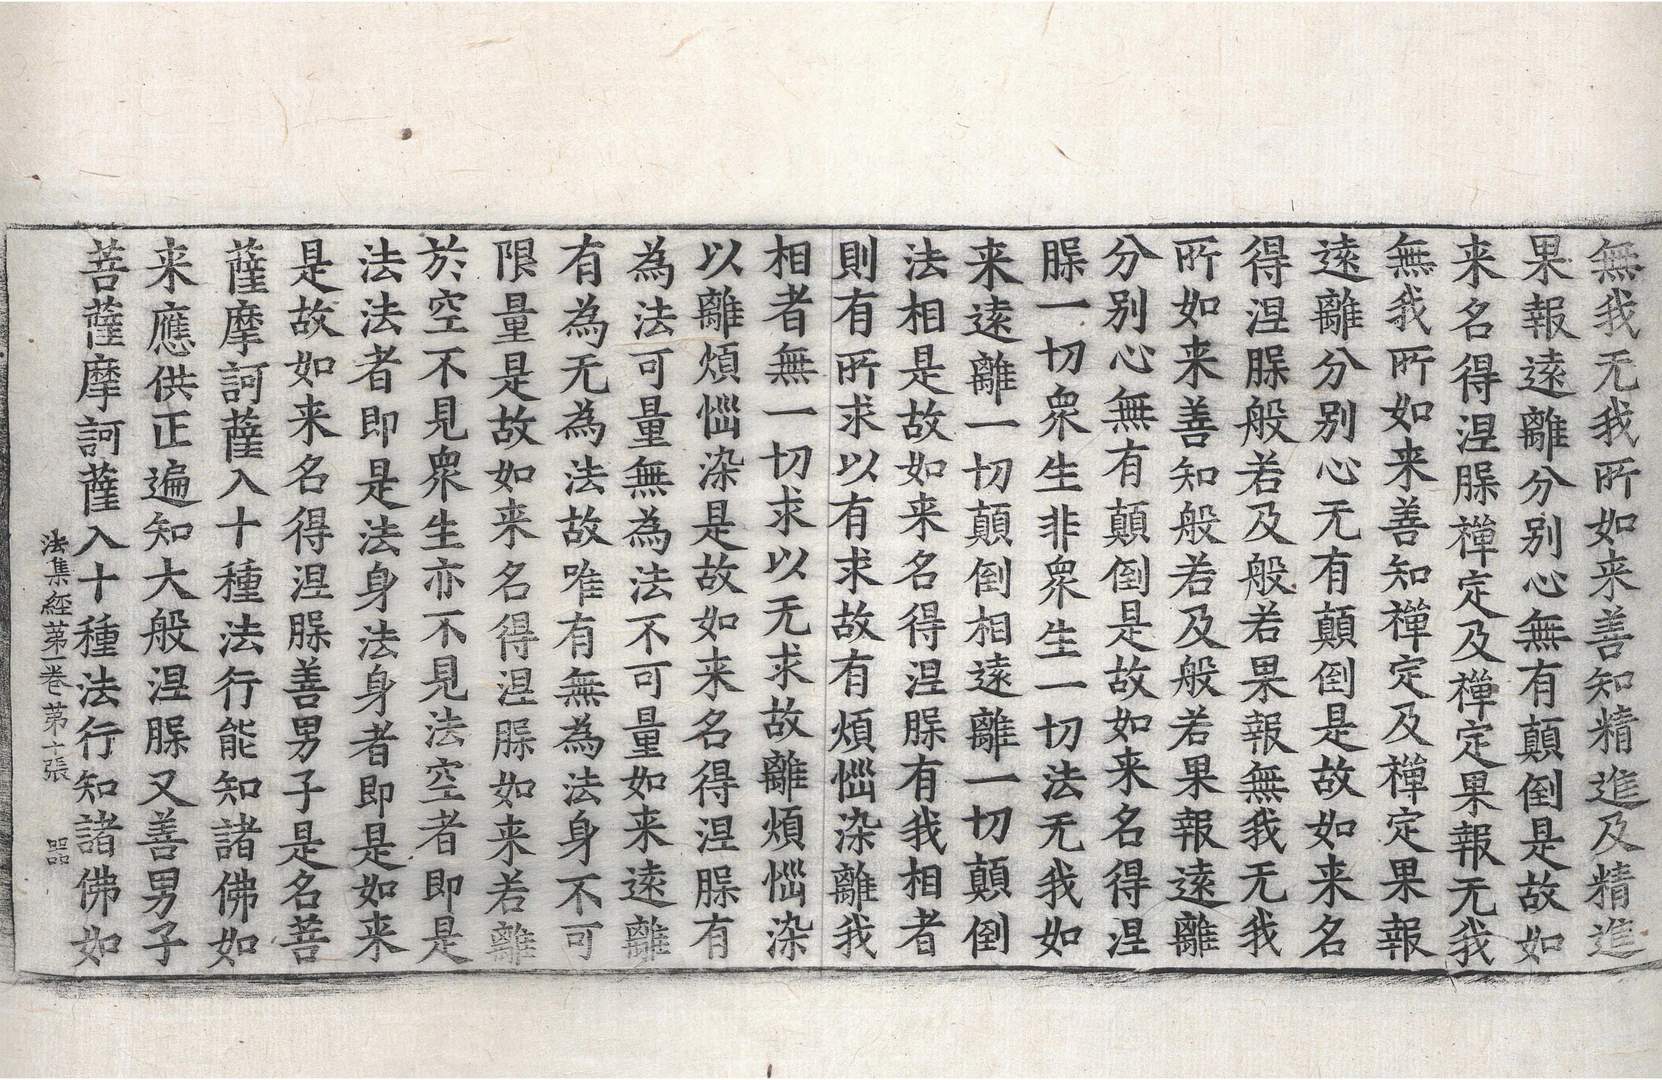 無我无我所如来善知精進及精進
果報遠離分別心無有顛倒是故如
来名得涅脲禪定及禪定果報无我
無我所如来善知禪定及禪定果報
遠離分别心无有顛倒是故如来名
得涅脲般若及般若果報無我无我
所如来善知般若及般若果報遠離
分别心無有顛倒是故如来名得涅
脲一切衆生非衆生一切法无我如
来遠離一切顛倒相遠離一切顛倒
法相是故如来名得涅脲有我相者
則有所求以有求故有煩惱染離我
相者無一切求以无求故離煩惱染
以離煩惱染是故如来名得涅脲有
為法可量無為法不可量如来遠離
有為无為法故唯有無為法身不可
限量是故如来名得涅脲如来若離
於空不見衆生亦不見法空者即是
法法者即是法身法身者即是如来
是故如来名得涅脲善男子是名菩
薩摩訶薩入十種法行能知諸佛如
来應供正遍知大般涅脲又善男子
菩薩摩訶薩入十種法行知諸佛如
法集經第一卷 第十張 器